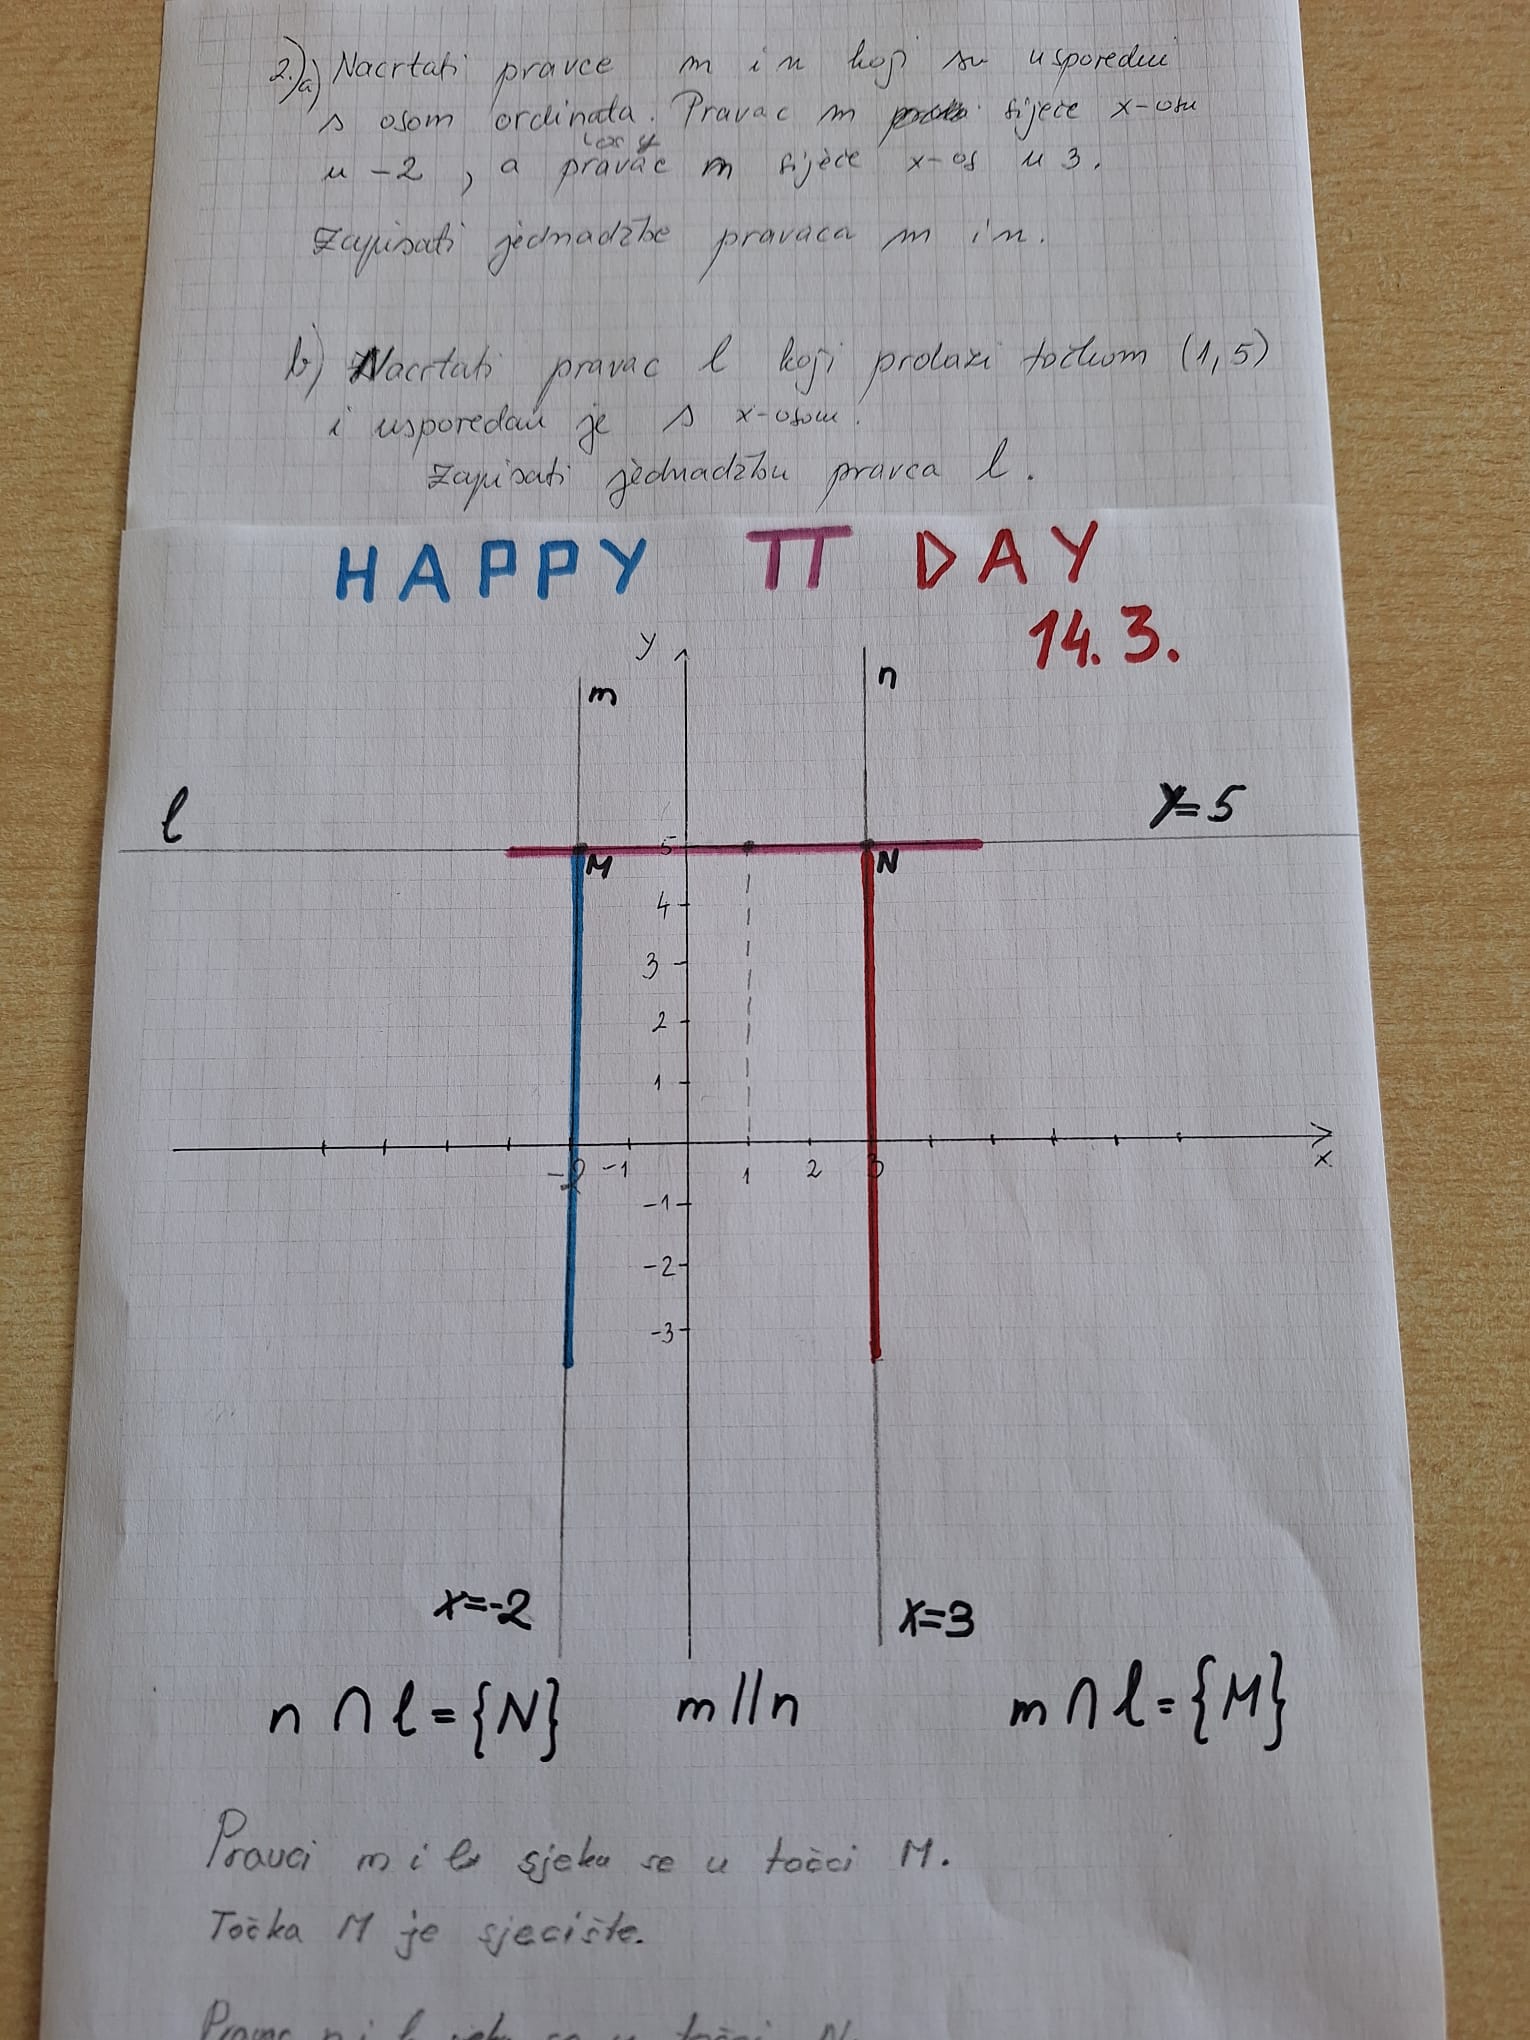 2.) a) Nacrtati pravce m i n koji su usporedni
s osom ordinata. Pravac m siječe x-osu
(os y
u -2, a pravac m siječe x-os u 3.
Zapisati jednadžbe pravaca m i n.
b) Nacrtati pravac l koji prolazi točkom (1,5)
i usporedan je s x-osom.
Zapisati jednadžbu pravca l.
HAPPY π DAY
14.3.
y
m
n
l
y=5
5
M
N
4
3
2
1
-2 -1 1 2 3
x
-1
-2
-3
x=-2
x=3
n ∩ l = {N} m || n m ∩ l = {M}
Pravci m i l sjeku se u točci M.
Točka M je sjecište.
n i l se u točci N.